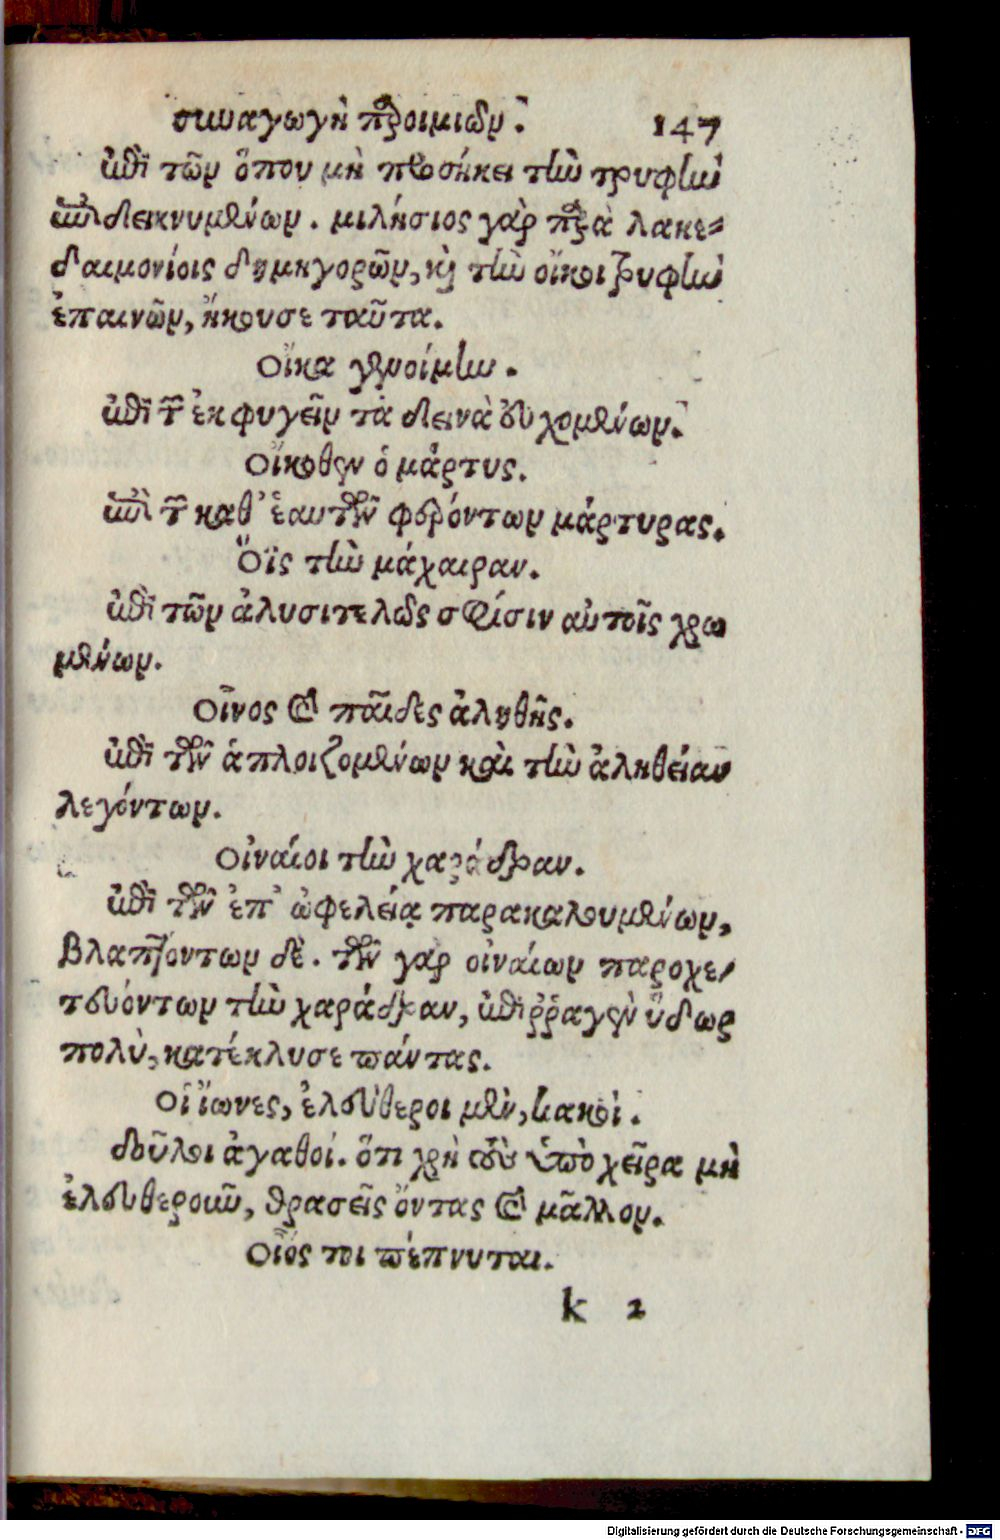 συναγωγὴ παροιμιῶν. 147
ἐπὶ τῶν ὅπου μὴ προσήκει τὴν τρυφὴν
ἐπιδεικνυμένων. μιλήσιος γὰρ παρὰ λακε-
δαιμονίοις δημηγορῶν, καὶ τὴν οἴκοι τρυφὴν
ἐπαινῶν, ἤκουσε ταῦτα.
Οἴκα γενοίμην.
ἐπὶ τῶν ἐκφυγεῖν τὰ δεινὰ εὐχομένων.
Οἴκοθεν ὁ μάρτυς.
ἐπὶ τῶν καθ' ἑαυτῶν φερόντων μάρτυρας.
Ὄϊς τὴν μάχαιραν.
ἐπὶ τῶν ἀλυσιτελῶς σφίσιν αὐτοῖς χρω
μένων.
Οἶνος καὶ παῖδες ἀληθῆς.
ἐπὶ τῶν ἁπλοιζομένων καὶ τὴν ἀληθείαν
λεγόντων.
Οἰναίοι τὴν χαράδραν.
ἐπὶ τῶν ἐπ' ὠφελείᾳ παρακαλουμένων,
βλαπτόντων δέ. τῶν γὰρ οἰναίων παροχε-
τευόντων τὴν χαράδραν, ἐπιῤῥαγὲν ὕδωρ
πολὺ, κατέκλυσε πάντας.
Οἱ ἴωνες, ἐλεύθεροι μὲν, κακοὶ.
δοῦλοι ἀγαθοί. ὅτι χρὴ τοὺς ὑπὸ χεῖρα μὴ
ἐλευθεροῦν, θρασεῖς ὄντας καὶ μᾶλλον.
Οἶός τοι πέπνυται.
k 2
Digitalisierung gefördert durch die Deutsche Forschungsgemeinschaft - DFG